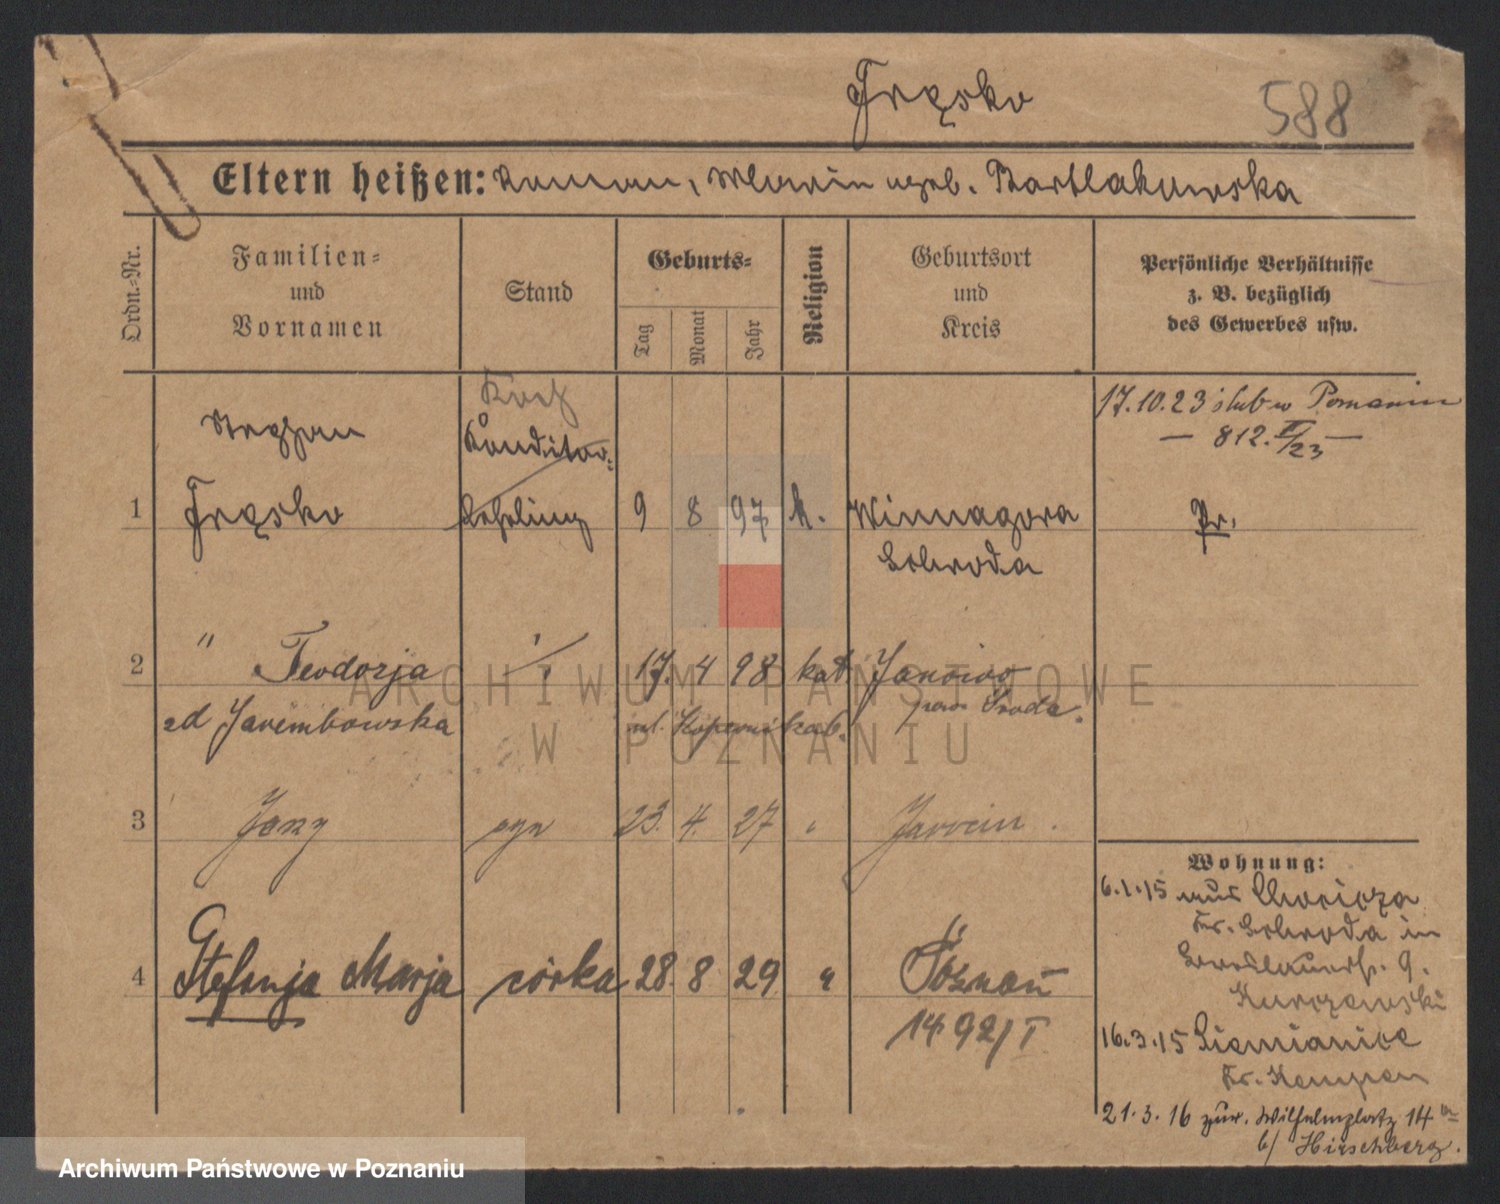 Frąsko
588
Eltern heißen: Roman, Maria geb. Bartlakowska
Ordn.=Nr.
Familien= und Vornamen
Stand
Geburts=
Tag
Monat
Jahr
Religion
Geburtsort und Kreis
Persönliche Verhältnisse z. B. bezüglich des Gewerbes usw.
Koch
17.10.23 ślub w Poznaniu
Stephan
Konditor=
— 812. II/23 —
1 Frąsko Lehrling 9 8 97 k. Winnagora Pr.
Schroda
2 " Teodorja 17. 4 98 kat. Janowo
zd Jarembowska ul. pow. Środa.
3 Jerzy syn 23. 4. 27 " Jarocin.
Wohnung:
6.1.15 aus
Kr. Schroda in
4 Stefanja Marja córka 28. 8 29 " Poznań
Breslauerstr. 9.
1492/I
16.3.15 Siemianice
Kr. Kempen
21.3.16 zur. Wilhelmplatz 14
b/ Hirschberg.
ARCHIWUM PAŃSTWOWE
W POZNANIU
Archiwum Państwowe w Poznaniu